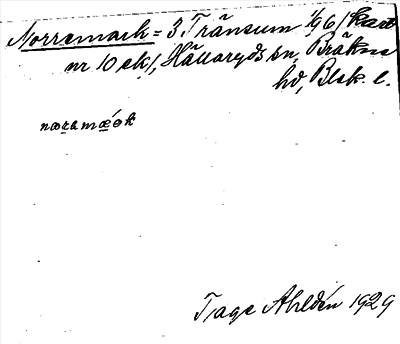 Norremark = 3 Tränsum 1/96 / Kart
nr 10 ek /, Hällaryds sn, Bräkne
hd, Blek. l.
Tage Ahldén 1929